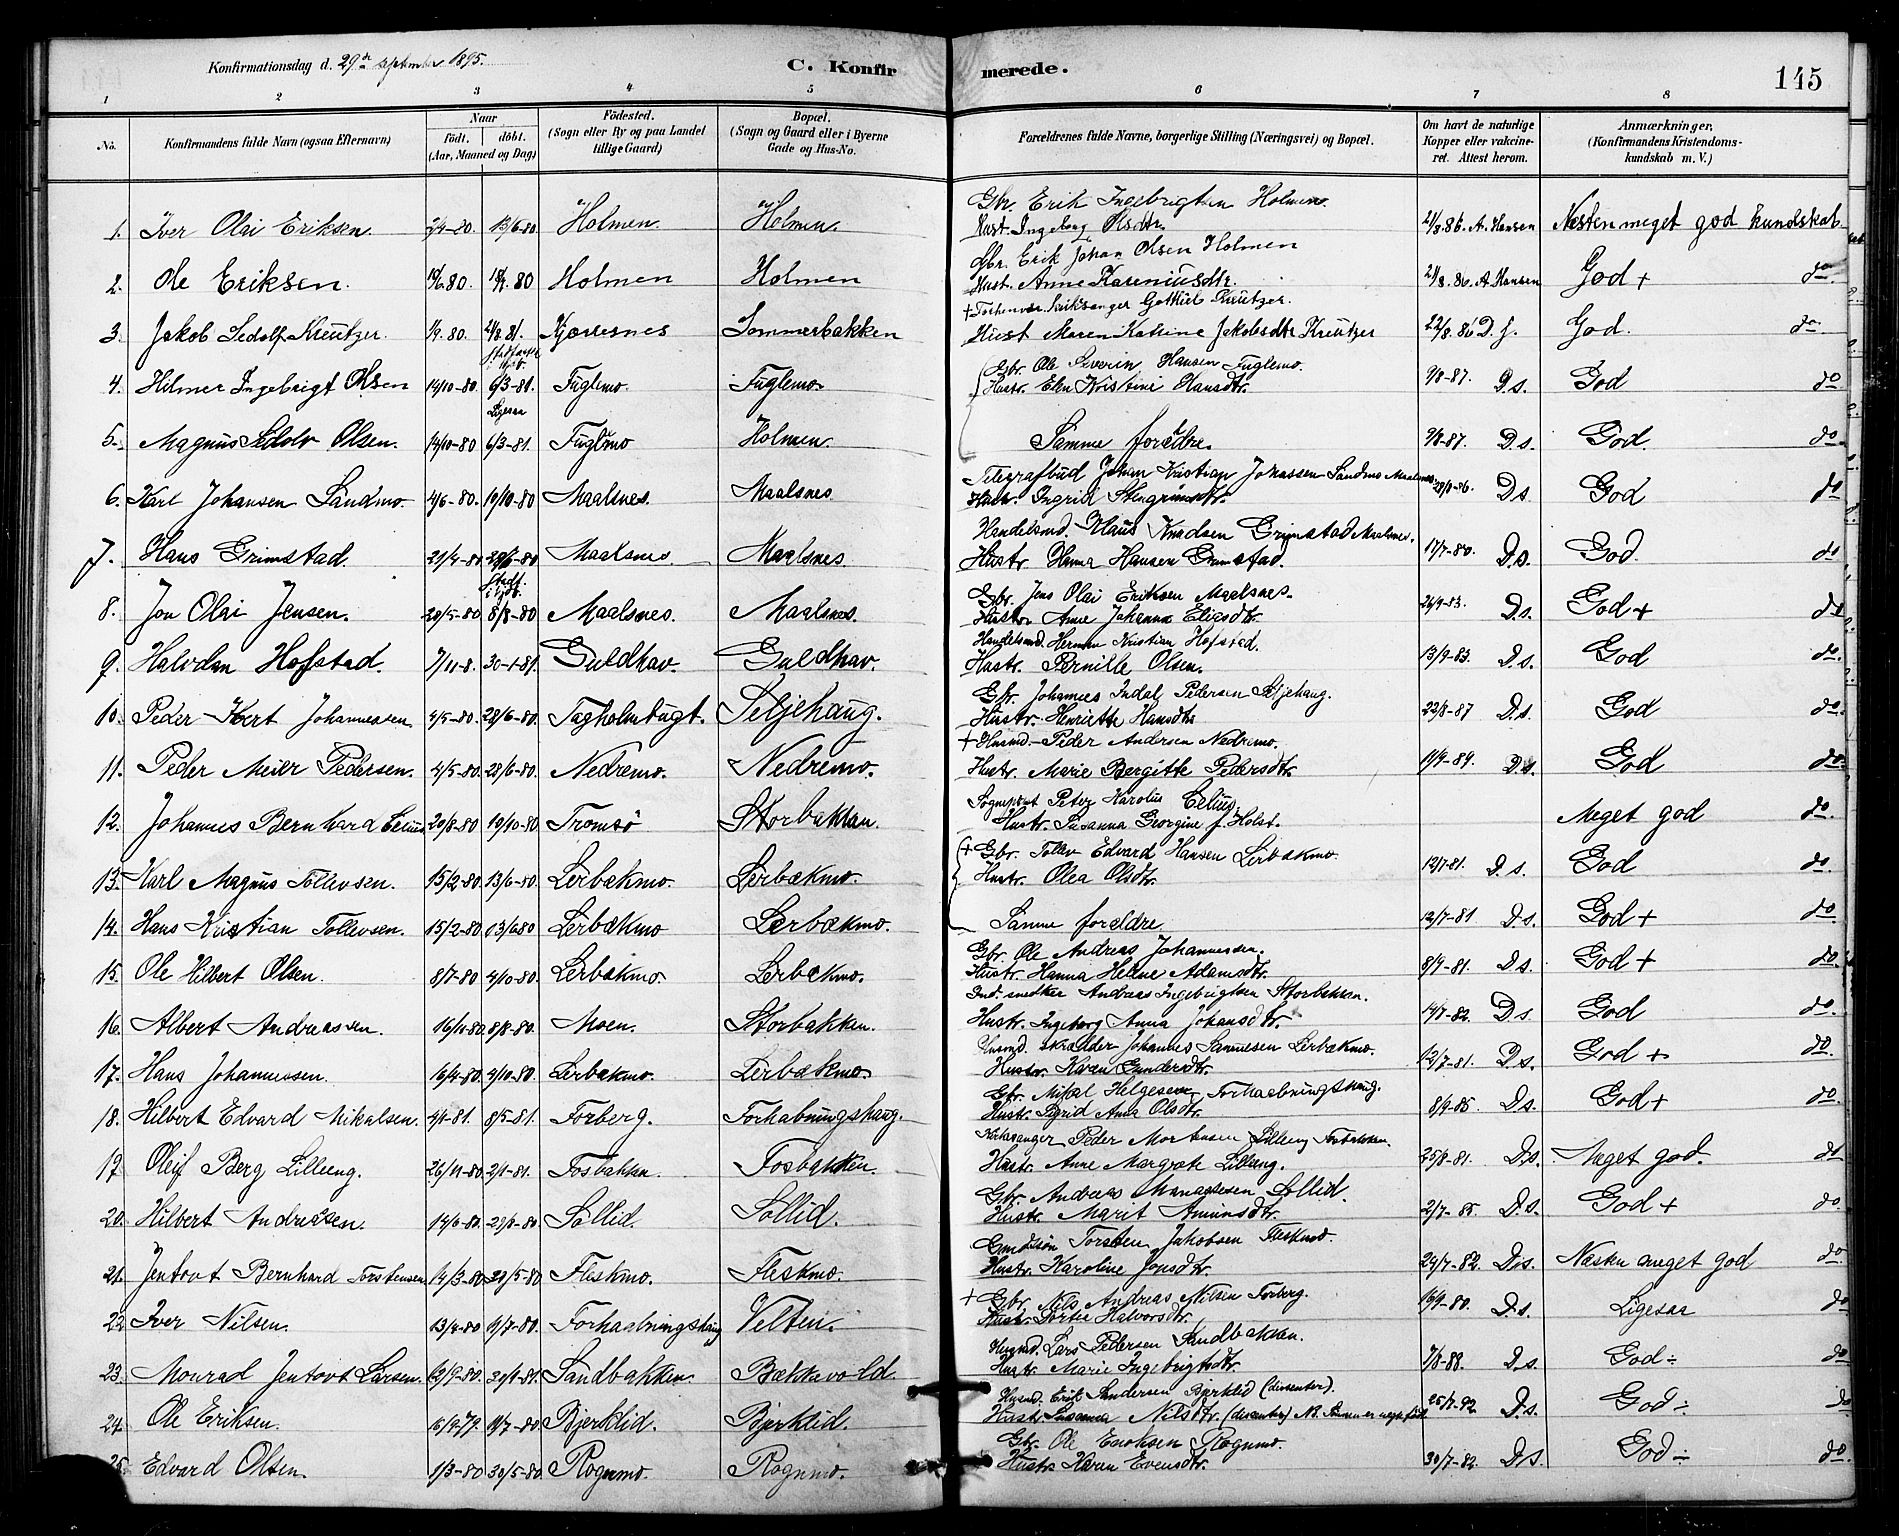 Konfirmationsdag d. 29de september 1895.
C. Konfirmerede.
145
1 2 3 4 5 6 7 8
No. Konfirmandens fulde Navn (ogsaa Efternavn) Naar født. døbt. (Aar, Maaned og Dag) Födested. (Sogn eller By og paa Landet tillige Gaard) Bopæl. (Sogn og Gaard eller i Byerne Gade og Hus-No. Forældrenes fulde Navne, borgerlige Stilling (Næringsvei) og Bopæl. Om havt de naturlige Kopper eller vakcineret. Attest herom. Anmærkninger, (Konfirmandens Kristendomskundskab m. V.)
Gbr. Erik Ingebrigtsen Holmen
1. Iver Olai Eriksen. 2/4-80 13/6-80 Holmen. Holmen. Hust. Ingeborg Olsdtr. 21/8.86. A. Hansen Næsten meget god kundskab
Gbr. Erik Johan Olsen Holmen
2. Ole Eriksen. 80. 80 Holmen Holmen Hust. Anne Kareniusdtr. 21/8.86. A. Hansen God + do.
+ Kirksanger Gottlieb Kreutzer.
3. Jakob Sedolf Kreutzer. 1/9.80. 21/8.81. Kjorsnes Sommerbakken Hust Maren Katrine Jakobsdtr Kreutzer 22/8.86 D. s. God. do.
Gbr. Ole Severin Hansen Fuglemo.
4. Hilmer Ingebrigt Olsen 14/10-80. 6/3-81. Fuglemo. Fuglemo. Hustr. Elen Kristine Hansdtr. 9/8-87. D s. God do
Ligesaa
5. Magnus Sedolv Olsen. 14/10-80 6/3-81. Fuglmo Holmen. Samme forældre. 9/8-87. D s. God. do.
Telegrafbud Johan Kristian Johansen Sandmo Maalsnes.
6. Karl Johansen Sandmo. 4/6-80. 10/10-80 Maalsnes. Maalsnes Hustr. Ingrid Stengrimsdtr. D s. God do
Handelsmd. Klaus Knudsen Grimstad Maalsnes.
7. Hans Grimstad. 21/4-80 29/6-80 Maalsnes. Maalsnes. Hustr Hanna Hansen Grimstad. 17/7-80. D. s. God. do
Gbr. Jens Olai Eriksen Maalsnes.
8. Jon Olai Jensen. 28/5-80 8/8-80 Maalsnes. Maalsnes. Hustr Anne Johanna Eliasdtr. 26/9-83. D.s. God + do
Handelsmd. Herman Kristian Hofstad.
9. Halvdan Hofstad. 7/11-8. 30-1-81. Guldhav. Guldhav. Hustr. Pernille Olsen. 13/9-83. D. s. God do.
Gbr. Johannes Indal Pedersen Seljehaug.
10. Peder Johannessen 4/5-80. 28/6-80. Tagholmbugt. Seljehaug. Hustr. Henriette Hansdtr 22/8-87 D.s. God do.
+ Husmd. Peder Andersen Nedremo.
11. Peder Meier Pedersen. 4/5-80. 28/6-80. Nedremo. Nedremo. Hustr. Marie Bergitte Pedersdtr. 11/9-89. D s. God do.
Sogneprest Peter Karolius Celius.
12. Johannes Bernhard Celius 20/8-80 19/10-80 Tromsö Storbakken. Hustr. Susanna Georgine f. Holst. Meget god do.
+ Gbr. Tollev Edvard Hansen Lerbækmo.
13. Karl Magnus Tollevsen. 15/2-80. 13/6-80. Lerbækmo. Lerbækmo. Hustr. Olea Olsdtr. 12/7-81. D. s. God do.
14. Hans Kristian Tollevsen. 15/2-80 13/6 80 Lerbækmo Lerbækmo. Samme forældre. 12/7-81 D.s. God + do.
Gbr. Ole Andreas Johannessen.
15. Ole Hilbert Olsen. 8/7-80 4/10-80. Lerbækmo. Lerbækmo. Hustr. Hanna Heline Adamsdtr. 8/9-81. D.s. God + do.
Ind. snedker Andreas Ingebrigtsen Storbakken.
16. Albert Andreassen. 16/4-80. 8/8-80. Moen. Storbakken. Hustr. Ingeborg Anna Johansdtr. 14/7-82. D s. God do.
Husmd. skrædder Johannes Samuelsen Lerbækmo.
17. Hans Johannessen. 16/4-80. 4/10-80. Lerbækmo. Lerbækmo. Hustr Karen Gundersdtr. 12/7-81. D s. God + do.
Gbr. Mikal Helgesen Forhaabningshaug.
18. Hilbert Edvard Mikalsen. 4/1-81. 8/5-81. Forberg. Forhabningshaug. Hustr. Sigrid Anna Olsdtr. 8/9-85. D s. God + do.
Kirkesanger Peder Mortensen Lilleeng Fosbakken.
19 Oleif Berg Lilleeng. 26/11-80. 2/1-81. Fosbakken. Fosbakken. Hustr. Anne Margrete Lilleeng. 25/8-81. D.s. Meget god. do
Gbr. Andreas Manassesen Sollid.
20. Hilbert Andreassen. 14/6-80. 29/8-80. Sollid. Sollid. Hustr. Marit Amunsdtr. 2/7-85. D.s. God + do.
Torsten Jakobsen Fleskmo.
21. Jentoft Bernhard Torstensen 14/3-80. 29/5-80. Fleskmo. Fleskmo. Hustr. Karoline Jonsdtr. 24/7-82. D.s. Næsten meget god do.
+ Gbr. Nils Andreas Nilsen Forberg.
22 Iver Nilsen. 13/4-80 11/7-80. Forhaabningshaug Velten. Hustr Dortea Halvorsdtr. 16/9-80. D. s. Ligesaa do
Husmd. Lars Pedersen Sandbakken.
23. Monrad Jentoft Larsen. Sandbakken. Bækkevold. Hustr. Marie Ingebrigtsdtr. 7/8-88. D.s. God ÷ do
Husmd. Erik Andersen Bjerklid (dissenter).
24. Ole Eriksen. 15/9-79. 11/7-80. Bjerklid. Bjerklid. Hustr Susanna Nilsdtr. (dissenter) 25/7-92. D.s. God ÷ do
Gbr. Ole Enoksen Rognmo.
25. Edvard Olsen. 1/3-80. 30/5-80. Rognmo. Rognmo. Hustr. Karen Evensdtr. 30/7-82. D.s. God ÷ do